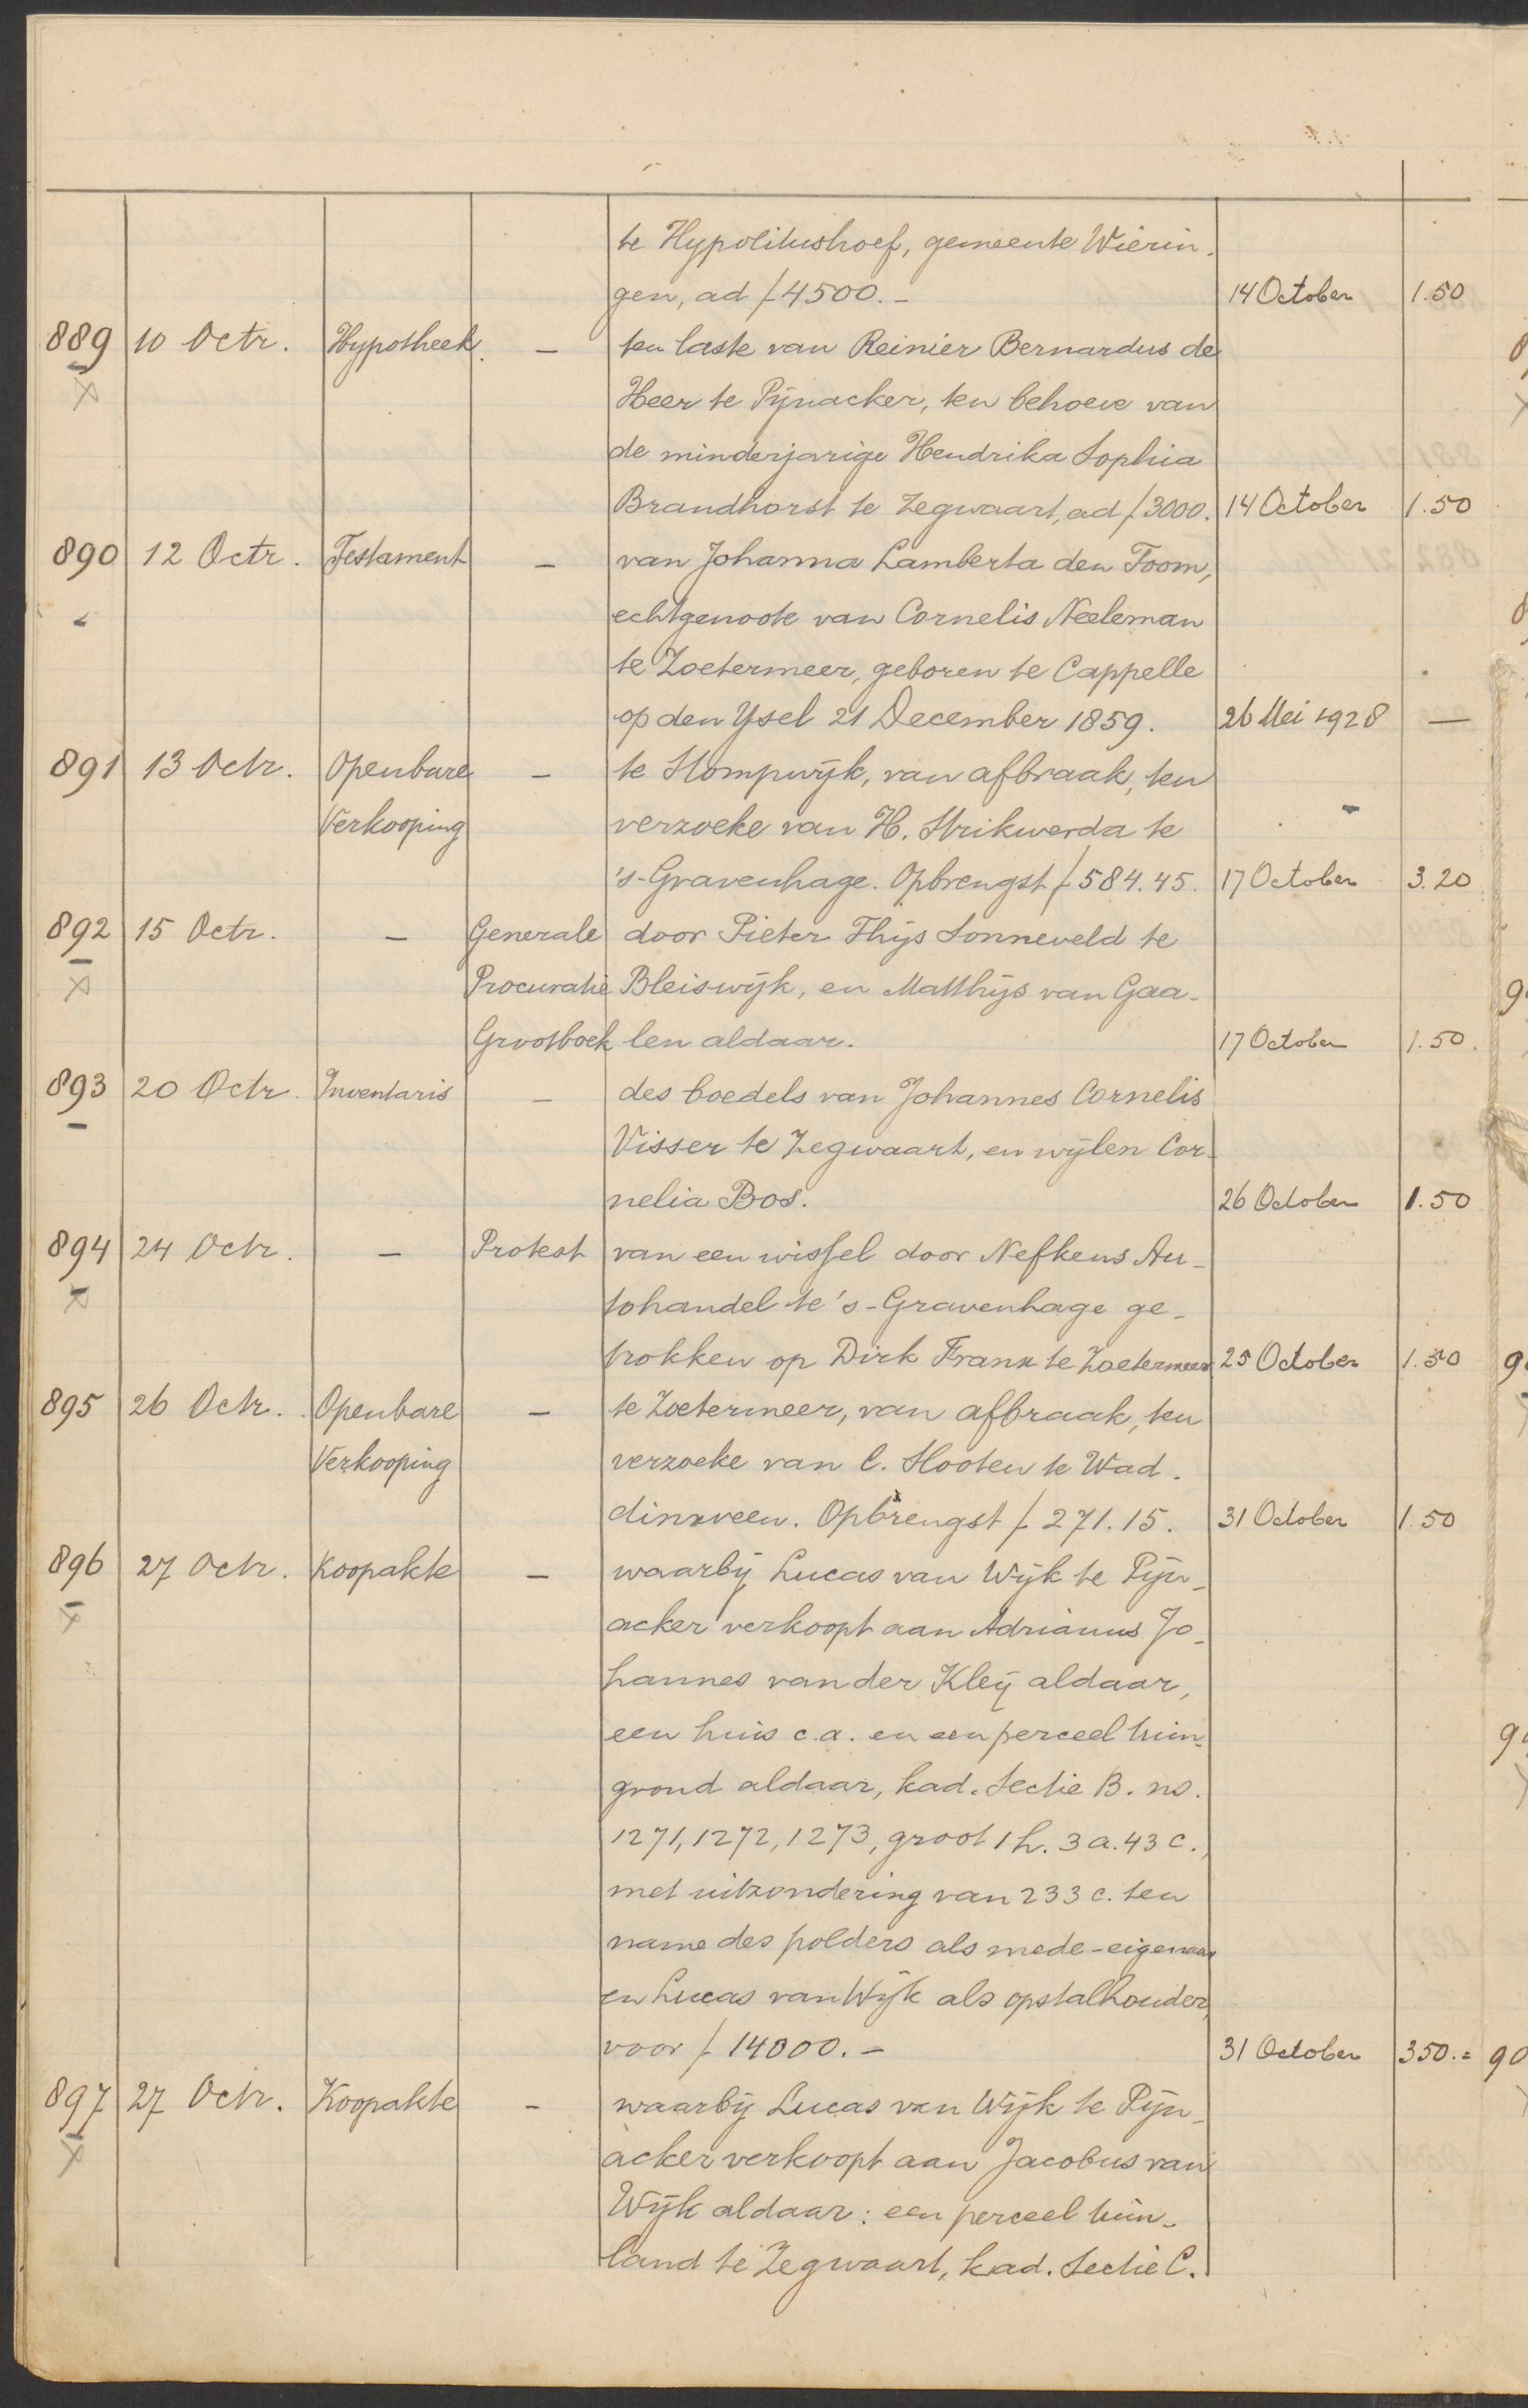 te Hypolitushoef, gemeente Wierin-
gen, ad f 4500.- 14 October 1.50
889 10 Octr. Hypotheek. — ten laste van Reinier Bernardus de
Heer te Pijnacker, ten behoeve van
de minderjarige Hendrika Sophia
Brandhorst te Zegwaart, ad f 3000. 14 October 1.50
890 12 Octr. Testament — van Johanna Lamberta den Toom,
echtgenoote van Cornelis Neeleman
te Zoetermeer, geboren te Cappelle
op den Ysel 21 December 1859. 26 Mei 1928 —
891 13 Octr. Openbare — te Stompwijk, van afbraak, ten
Verkooping verzoeke van H. Strikwerda te
's-Gravenhage. Opbrengst f 584.45. 17 October 3.20
892 15 Octr. — Generale door Pieter Thijs Sonneveld te
Procuratie Bleiswijk, en Matthijs van Gaa-
Grootboek len aldaar. 17 October 1.50.
893 20 Octr. Inventaris — des boedels van Johannes Cornelis
Visser te Zegwaart, en wijlen Cor-
nelia Bos. 26 October 1.50
894 24 Octr. — Protest van een wissel door Nefkens Au-
tohandel te 's-Gravenhage ge-
trokken op Dirk Frank te Zoetermeer 25 October 1.50
895 26 Octr. Openbare — te Zoetermeer, van afbraak, ten
Verkooping verzoeke van C. Slooten te Wad-
dinxveen. Opbrengst f 271.15. 31 October 1.50
896 27 Octr. Koopakte — waarbij Lucas van Wijk te Pijn-
acker verkoopt aan Adrianus Jo-
hannes van der Kleij aldaar,
een huis c.a. en een perceel tuin-
grond aldaar, kad. Sectie B. no.
1271, 1272, 1273, groot 1 h. 3 a. 43 c.,
met uitzondering van 233 c. ten
name des polders als mede-eigenaar
en Lucas van Wijk als opstalhouder,
voor f 14000.- 31 October 350.=
897 27 Octr. Koopakte — waarbij Lucas van Wijk te Pijn-
acker verkoopt aan Jacobus van
Wijk aldaar: een perceel tuin-
land te Zegwaart, kad. Sectie C.